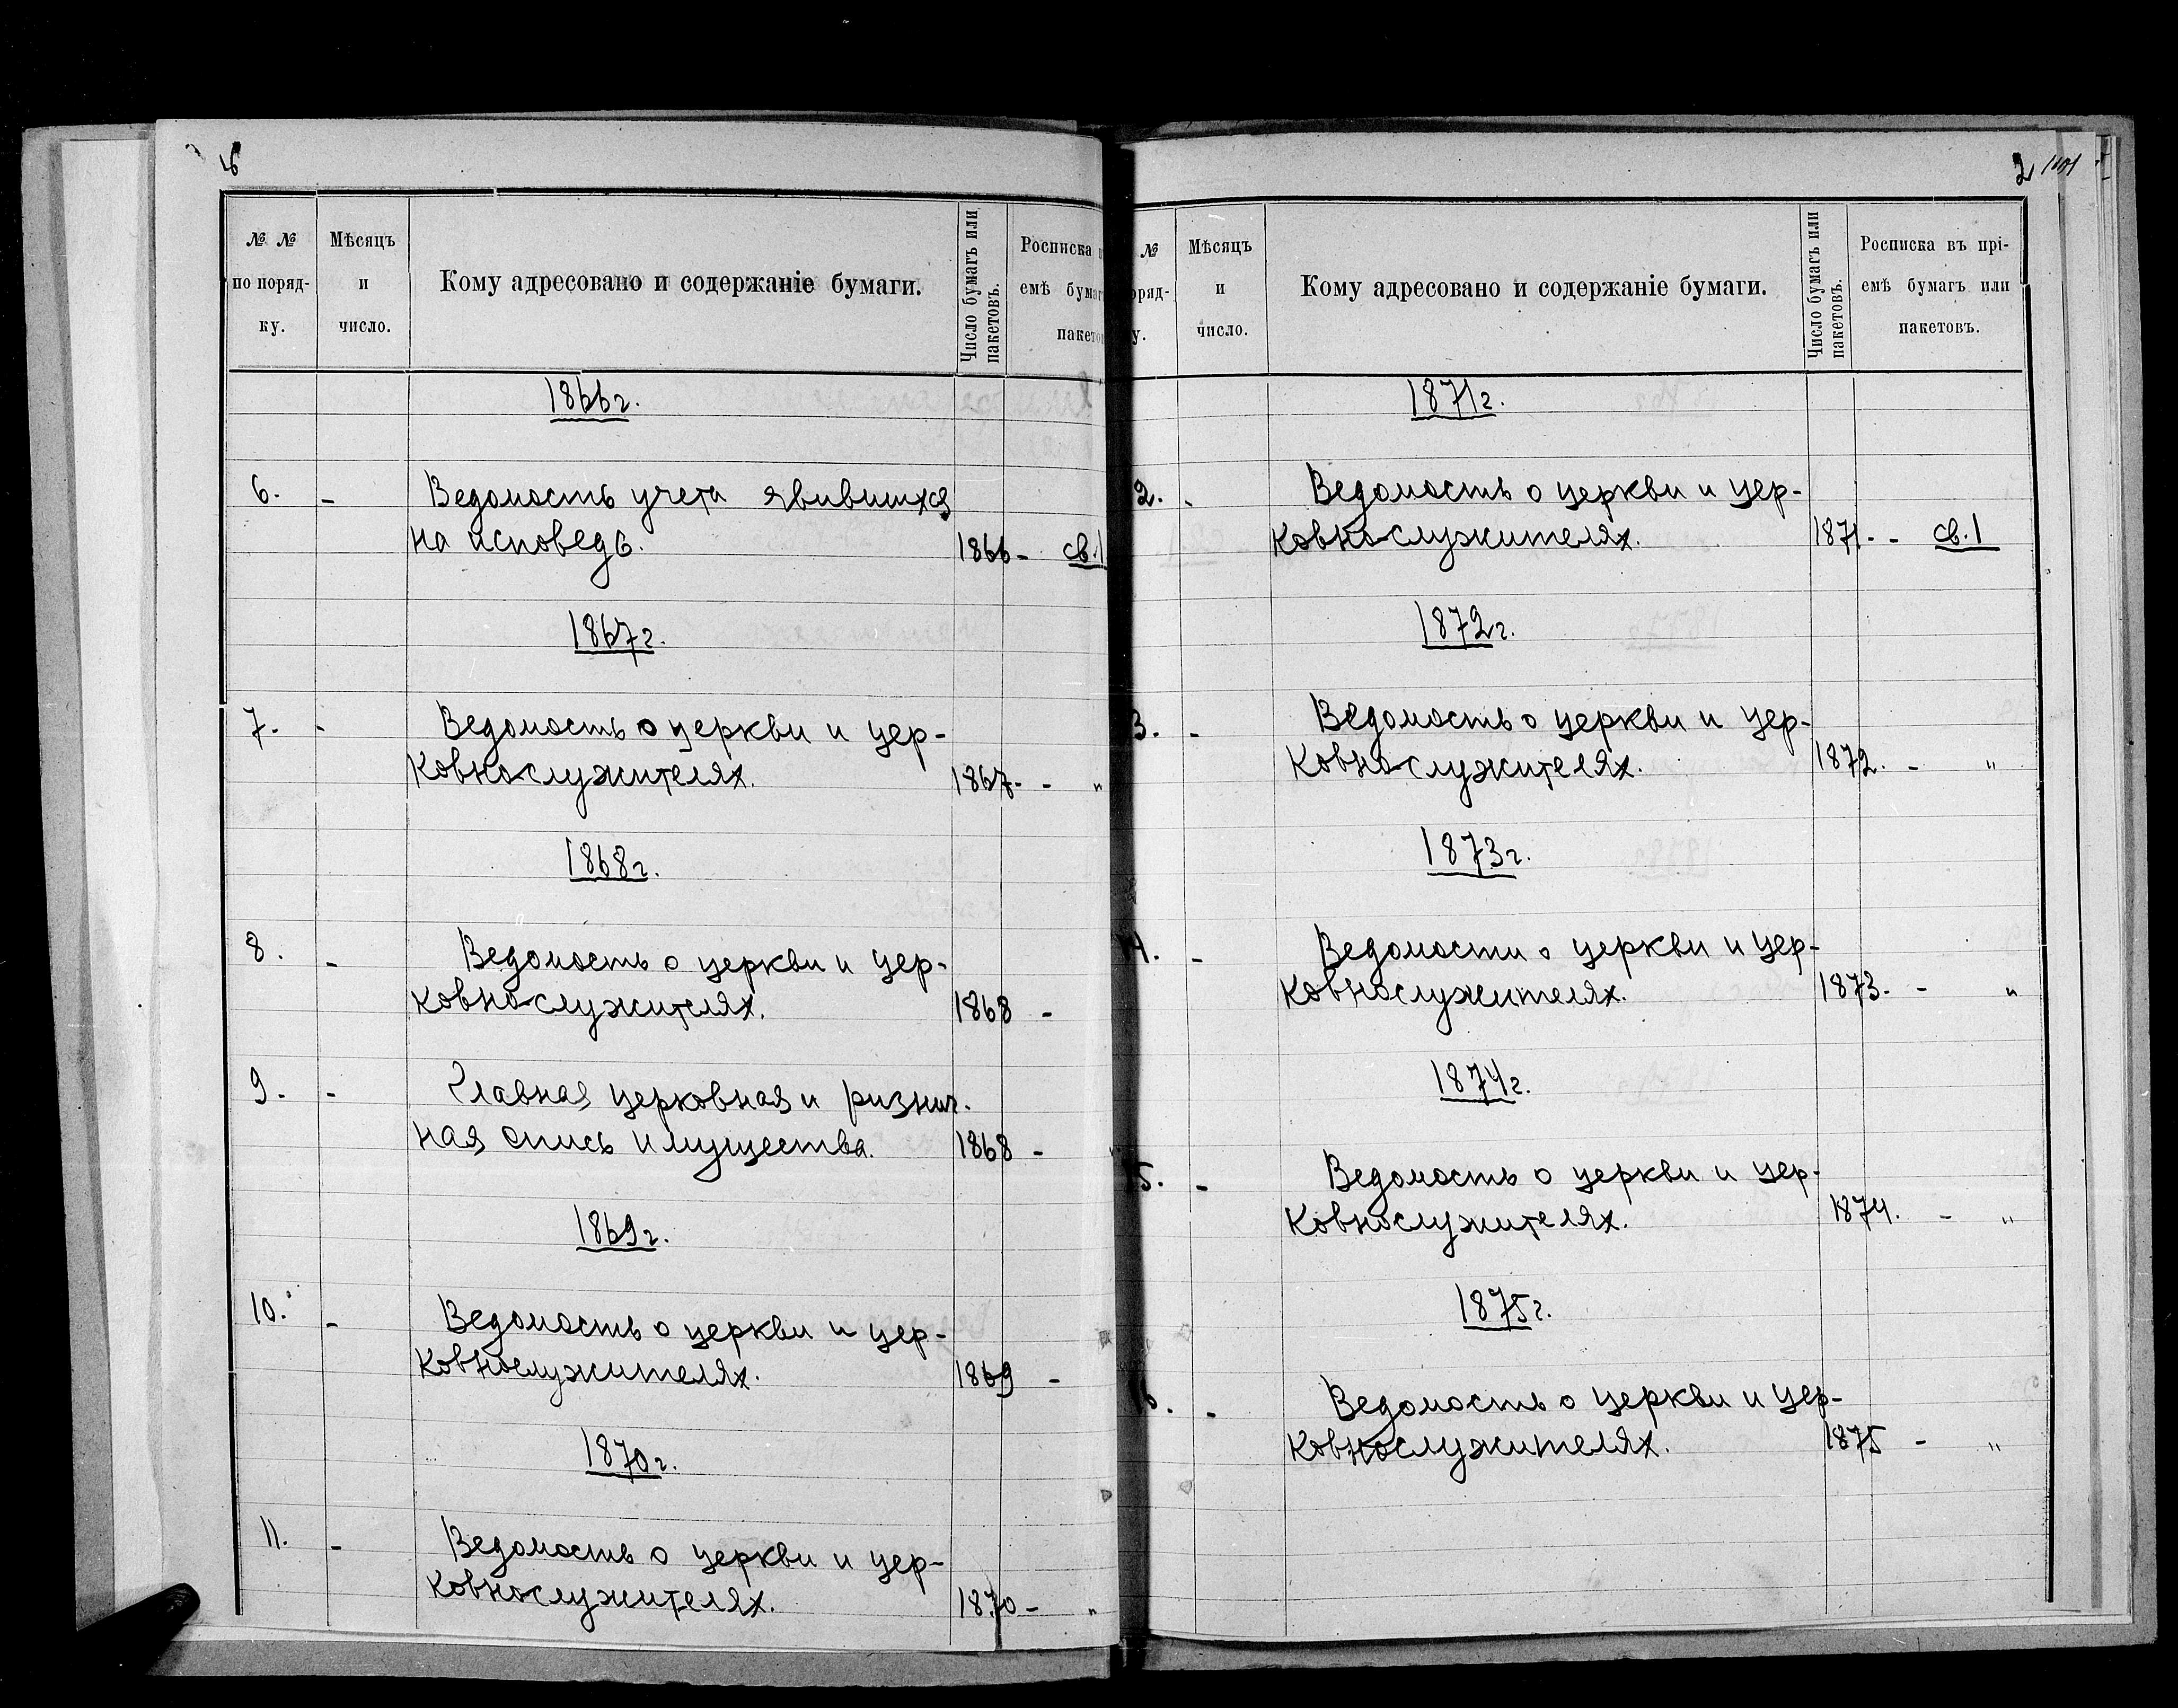 № №
по поряд-
ку.
Мѣсяцъ
и
число.
Кому адресовано и содержаніе бумаги.
Число бумагъ или
пакетовъ.
Росписка
емѣ бумаг
пакето
1866г.
6. - Ведомость учета явившихся
на исповедь. 1866 - св.1
1867г.
7. - Ведомость о церкви и цер-
ковнослужителях. 1867. - "
1868г.
8. - Ведомость о церкви и цер-
ковнослужителях. 1868 -
9. - Главная церковная и ризнич.
ная опись имущества. 1868 -
1869г.
10. - Ведомость о церкви и цер-
ковнослужителях. 1869 -
1870г.
11. - Ведомость о церкви и цер-
ковнослужителях. 1870 - "
2
№
оряд-
у.
Мѣсяцъ
и
число.
Кому адресовано и содержаніе бумаги.
Число бумагъ или
пакетовъ.
Росписка въ прі-
емѣ бумагъ или
пакетовъ.
1871г.
2. - Ведомость о церкви и цер-
ковнослужителях. 1871. - св.1
1872г.
3. - Ведомость о церкви и цер-
ковнослужителях. 1872. - "
1873г.
4. - Ведомости о церкви и цер-
ковнослужителях. 1873. - "
1874г.
5. - Ведомость о церкви и цер-
ковнослужителях. 1874. - "
1875г.
6. - Ведомость о церкви и цер-
ковнослужителях. 1875 - "